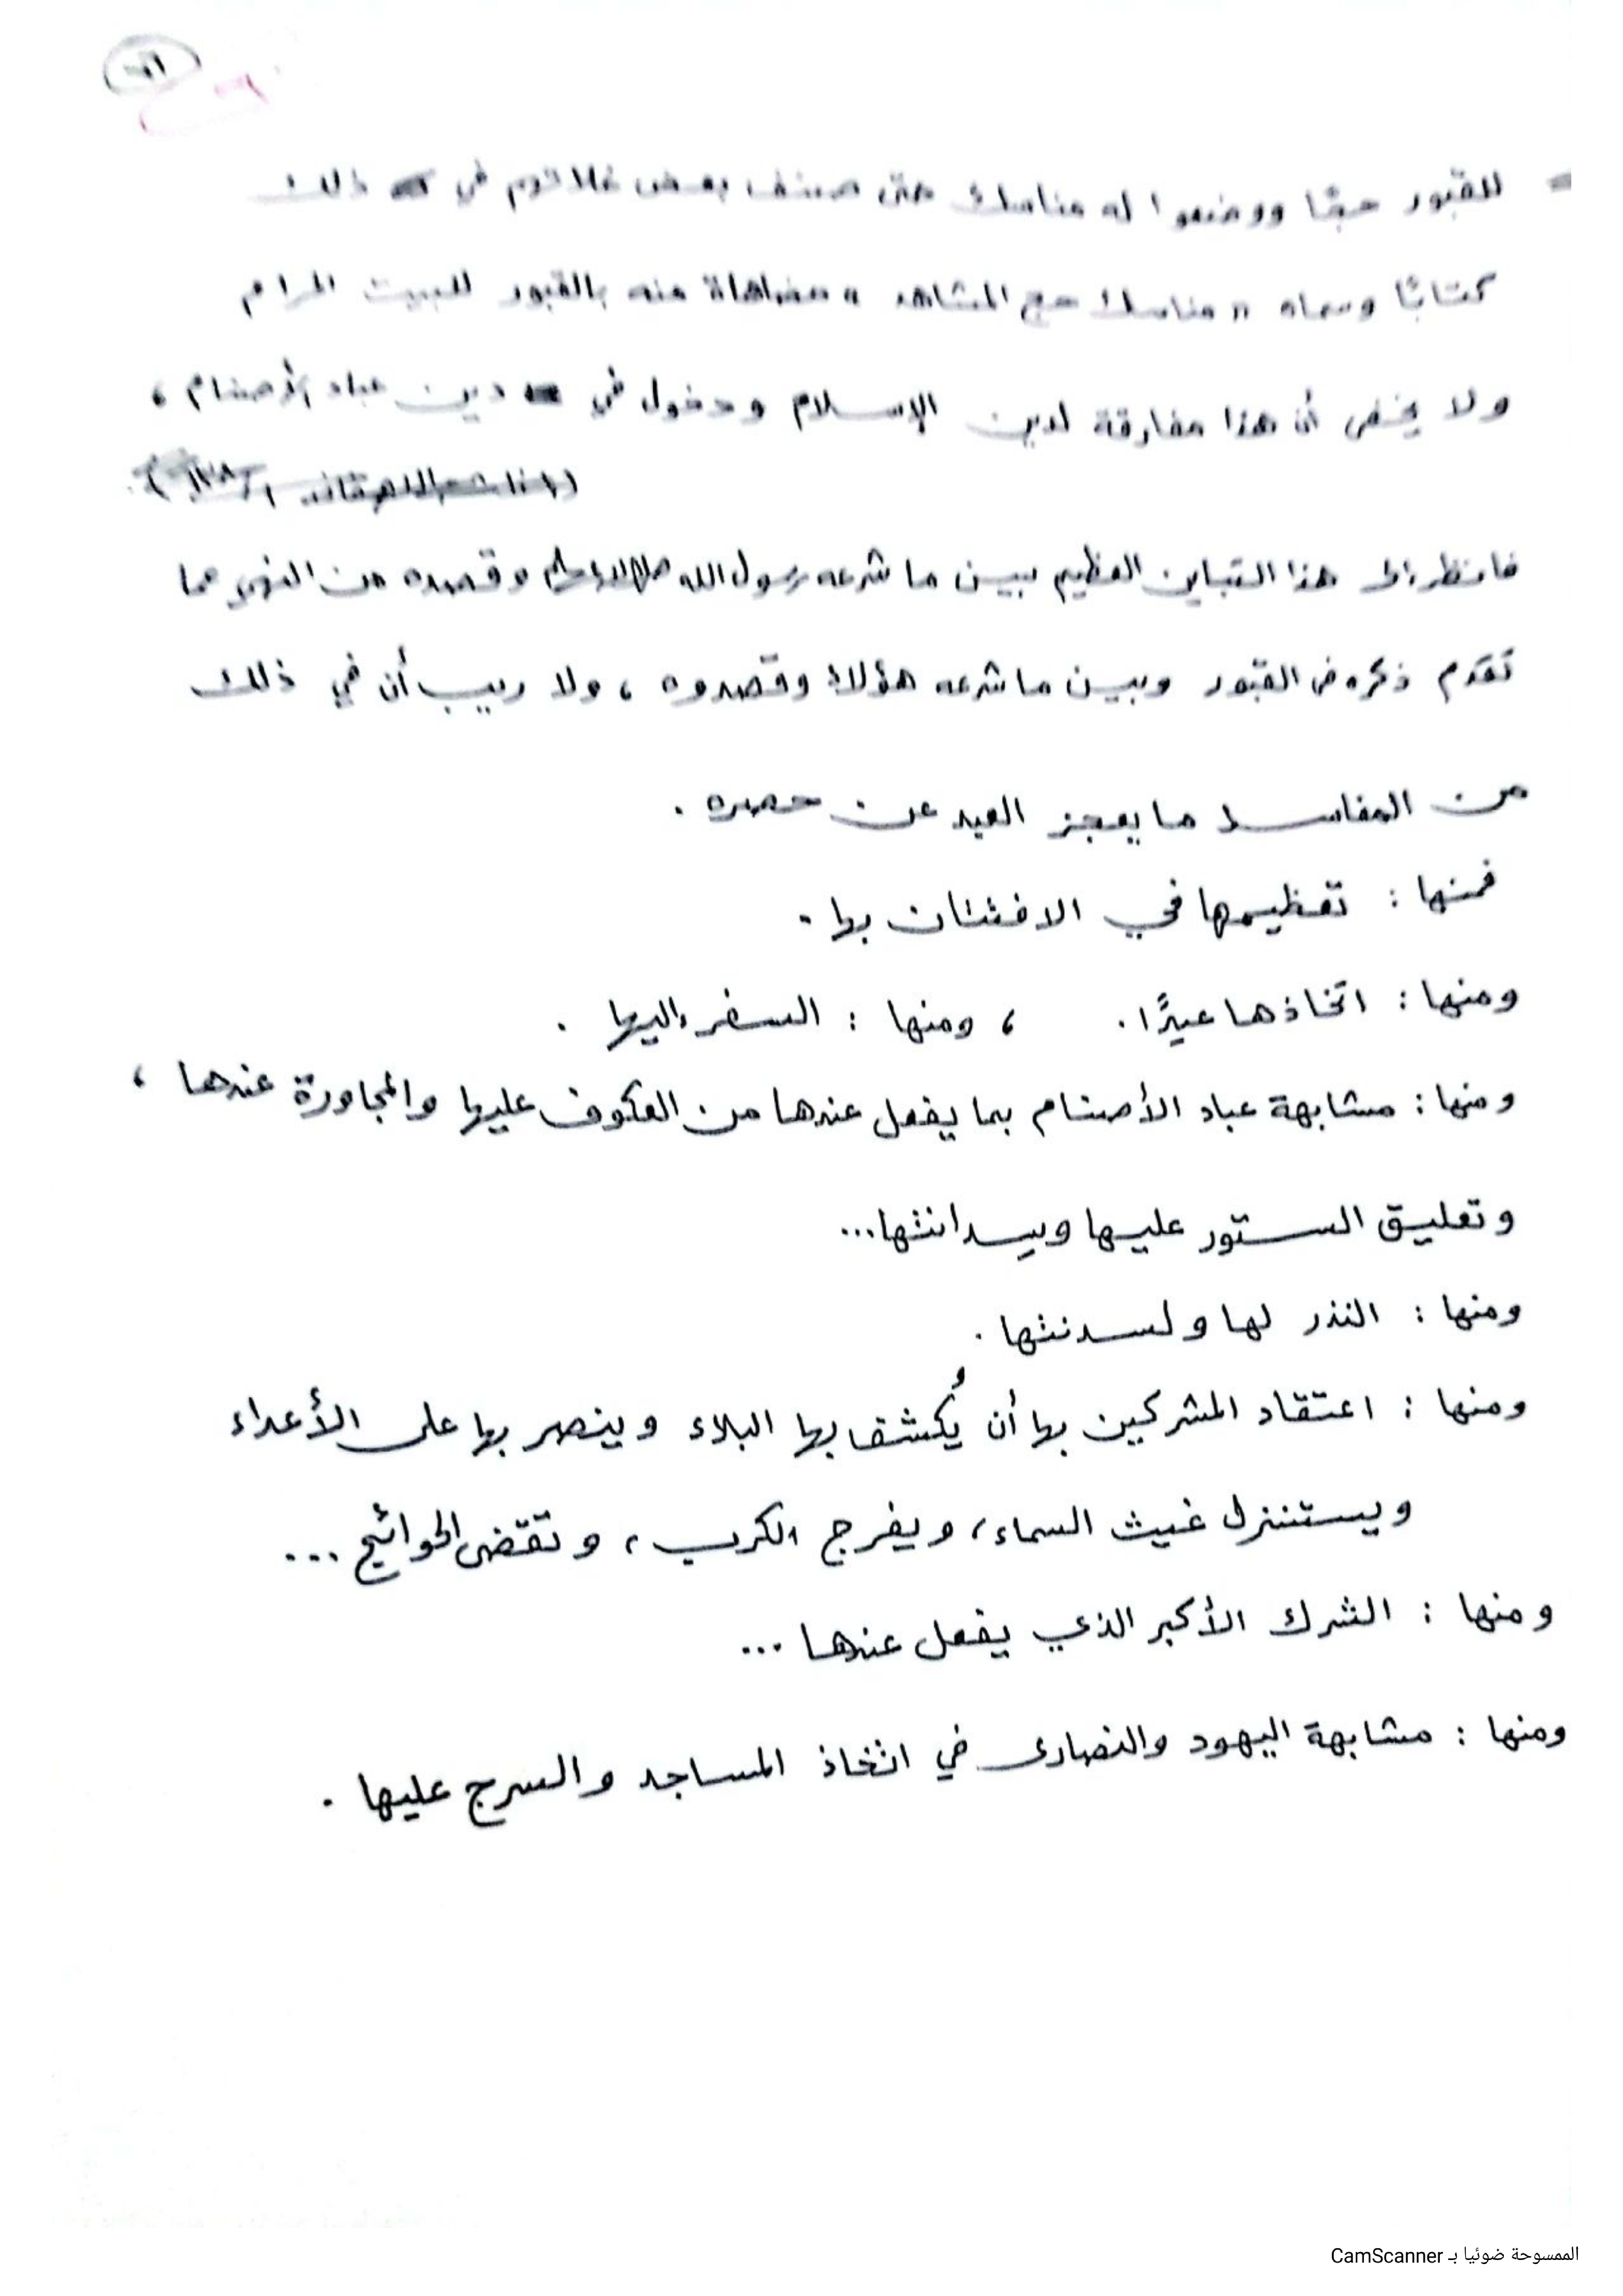 = للقبور حجًا ووضعوا له مناسك حتى صنف بعض غلاتهم في ذلك
كتابًا وسماه "مناسك حج المشاهد" مضاهاة منه بالقبور للبيت الحرام
ولا يخفى أن هذا مفارقة لدين الإسلام ودخول في دين عباد الأصنام ،
فانظر إلى هذا التباين العظيم بين ما شرعه رسول الله صلى الله عليه وسلم وقصده من النهي عما
تقدم ذكره في القبور وبين ما شرعه هؤلاء وقصدوه ، ولا ريب أن في ذلك
من المفاسد ما يعجز العبد عن حصره .
فمنها : تعظيمها في الافتتان بها .
ومنها : اتخاذها عيدًا . ، ومنها : السفر إليها .
ومنها : مشابهة عباد الأصنام بما يفعل عندها من العكوف عليها والمجاورة عندها ،
وتعليق الستور عليها وسدانتها...
ومنها : النذر لها ولسدنتها .
ومنها : اعتقاد المشركين بها أن يُكشف بها البلاء وينصر بها على الأعداء
ويستنزل غيث السماء ، ويفرج الكرب ، وتقضى الحوائج ...
ومنها : الشرك الأكبر الذي يفعل عندها ...
ومنها : مشابهة اليهود والنصارى في اتخاذ المساجد والسرج عليها .
الممسوحة ضوئيا بـ CamScanner